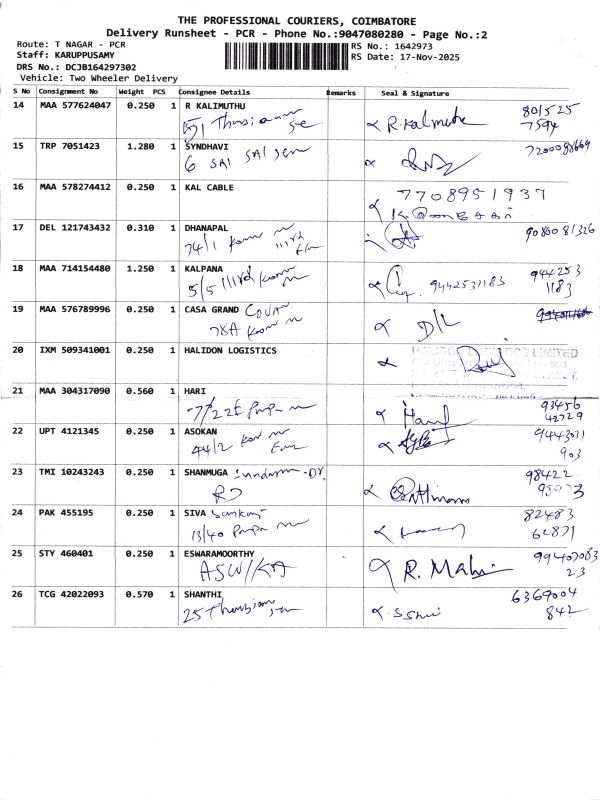 THE PROFESSIONAL COURIERS, COIMBATORE
Delivery Runsheet - PCR - Phone No.:9047080280 - Page No.:2
Route: T NAGAR - PCR
RS No.: 1642973
Staff: KARUPPUSAMY
RS Date: 17-Nov-2025
DRS No.: DCJB164297302
Vehicle: Two Wheeler Delivery
S No Consignment No Weight PCS Consignee Details Remarks Seal & Signature
14 MAA 577624047 0.250 1 R KALIMUTHU
R.Kalimuthu 801525
7594
15 TRP 7051423 1.280 1 SYNDHAVI
6 SAI SAI 7200098669
16 MAA 578274412 0.250 1 KAL CABLE
7708951937
17 DEL 121743432 0.310 1 DHANAPAL
74/1 9080081326
18 MAA 714154480 1.250 1 KALPANA
5/5 IIIrd 9442531183 944253
1183
19 MAA 576789996 0.250 1 CASA GRAND
78A D/L
20 IXM 509341001 0.250 1 HALIDON LOGISTICS
HALIDON LOGISTICS LIMITED
21 MAA 304317090 0.560 1 HARI
7/22E 93456
42729
22 UPT 4121345 0.250 1 ASOKAN
44/2 9443031
903
23 TMI 10243243 0.250 1 SHANMUGA
98422
24 PAK 455195 0.250 1 SIVA
13/40 82483
62871
25 STY 460401 0.250 1 ESWARAMOORTHY
R. Mahi 99407083
23
26 TCG 42022093 0.570 1 SHANTHI
25 6369004
842